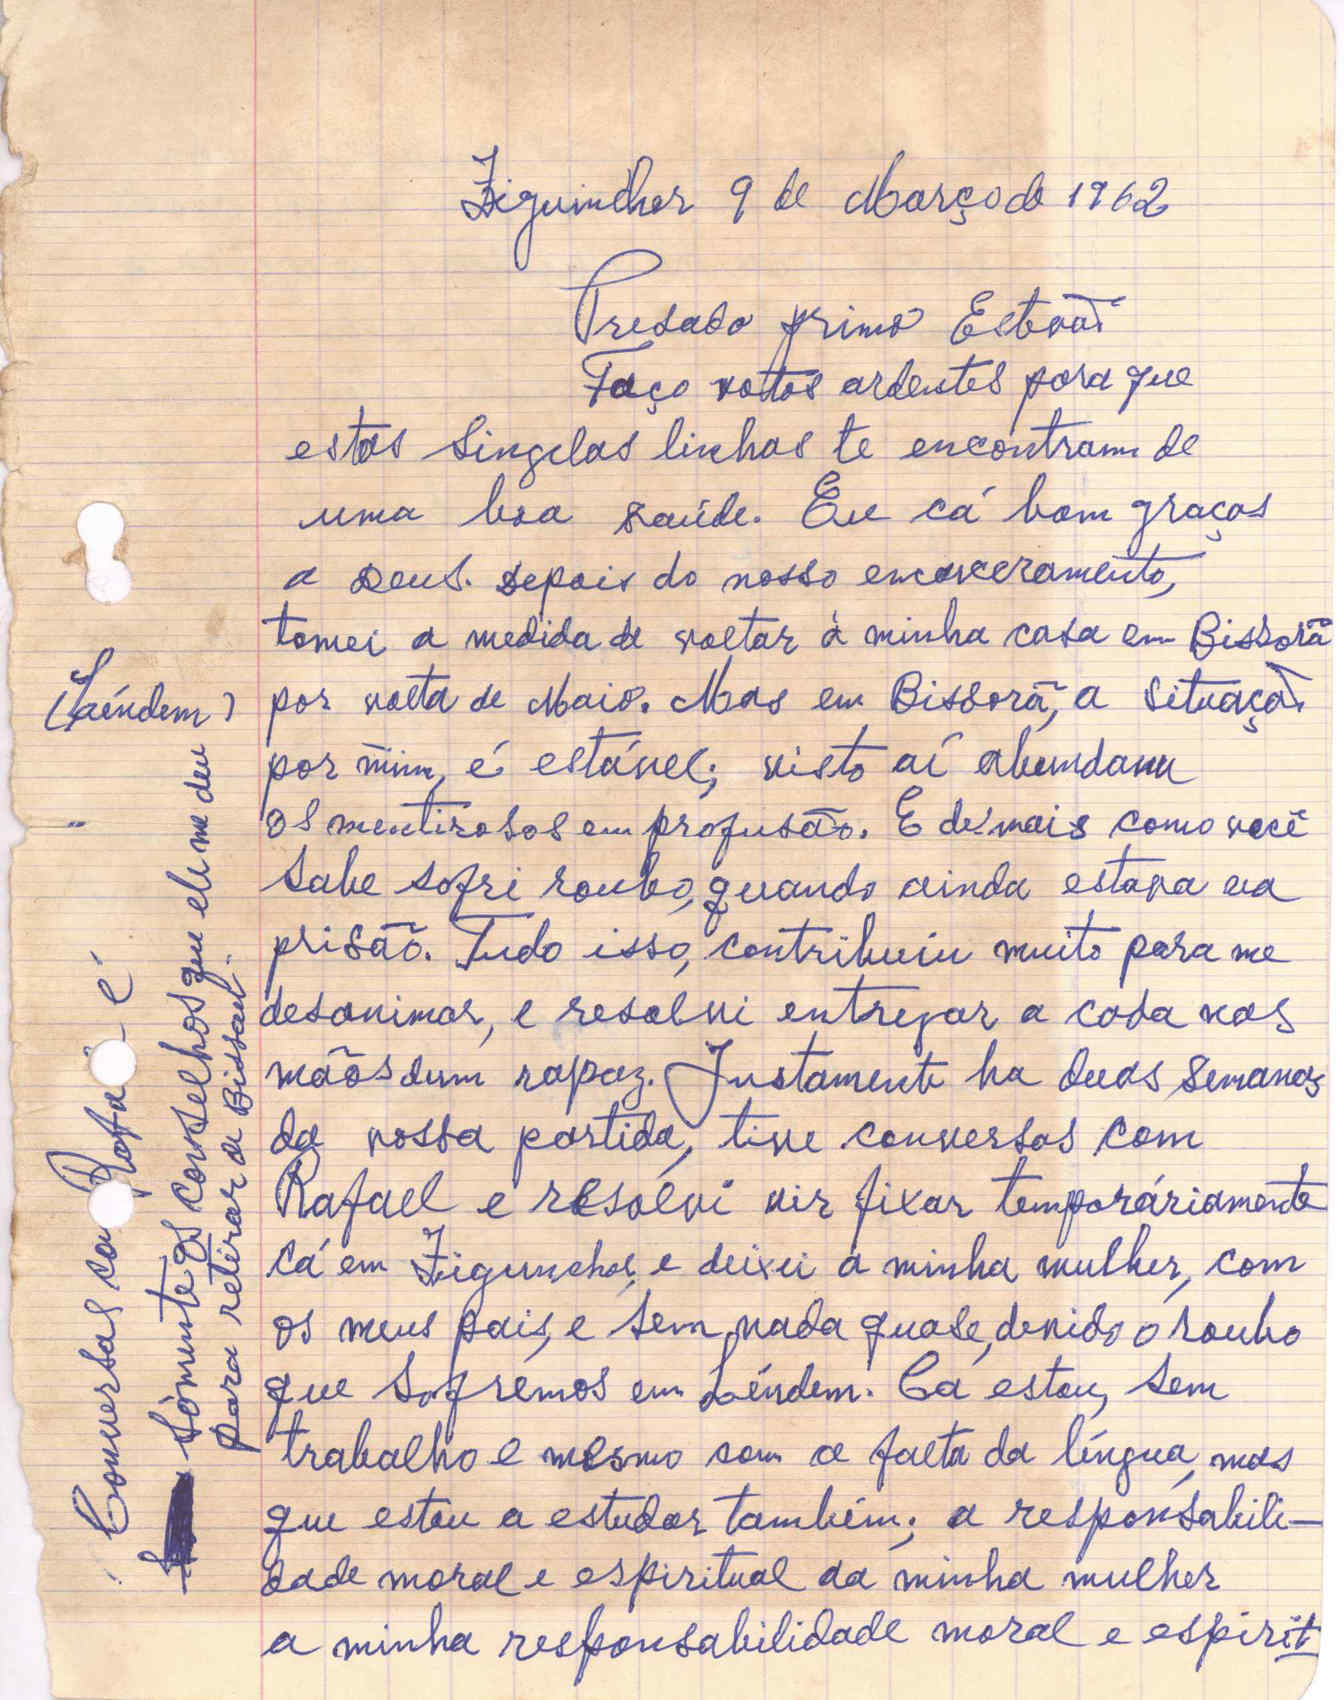 Ziguinchor 9 de Março de 1962
Presado primo Estevão
Faço votos ardentes para que
estas singelas linhas te encontram de
uma boa saúde. Eu cá bom graças
a Deus. Depois do nosso encarceramento,
tomei a medida de voltar à minha casa em Bissorã
por volta de Maio. Mas em Bissorã, a situação
por mim, é estável; visto aí abundam
os mentirosos em profusão. E demais como você
sabe sofri roubo, quando ainda estava na
prisão. Tudo isso, contribuiu muito para me
desanimar, e resolvi entregar a casa nas
mãos dum rapaz. Justamente ha duas semanas
da vossa partida, tive conversas com
Rafael e resolvi vir fixar temporáriamente
cá em Ziguinchor, e deixei a minha mulher, com
os meus pais, e sem nada quase, devido o roubo
que sofrémos em Léndem. Cá estou, sem
trabalho e mesmo com a falta da língua, mas
que estou a estudar também; a responsabili-
dade moral e espiritual da minha mulher
a minha responsabilidade moral e espirit
(Léndem)
Conversas co Rafa é
sòmente os conselhos que ele me deu
para retirar a Bissau.